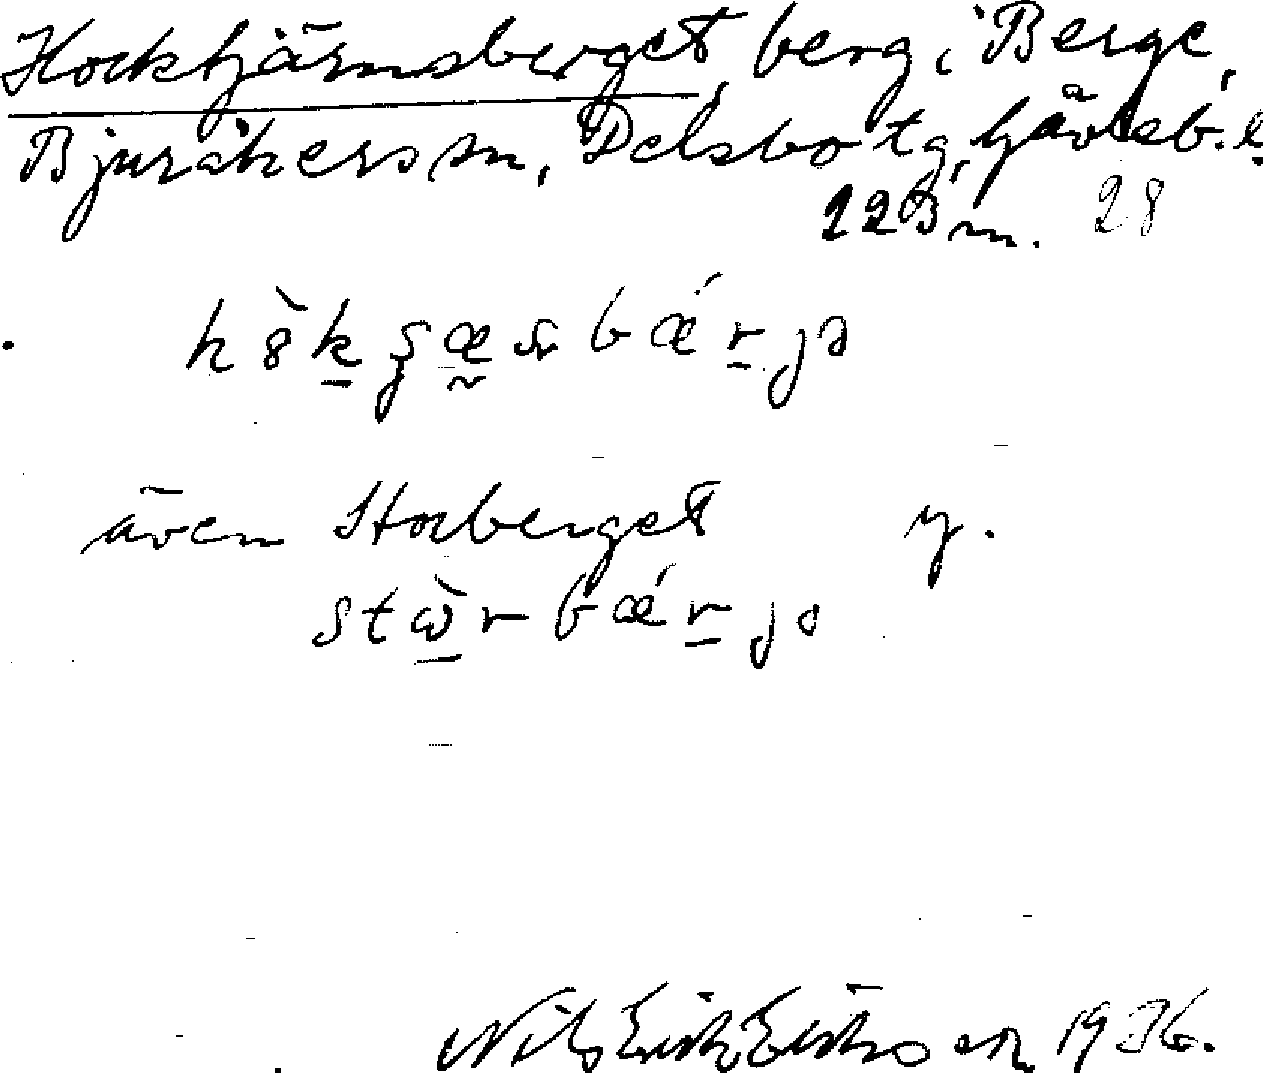 Hocktjärnsberget, berg i Berge,
Bjuråkers sn, Delsbo tg, Gävleb. l.
223 m. 28
även Storberget y.
Nils Erik Eriksson 1936.